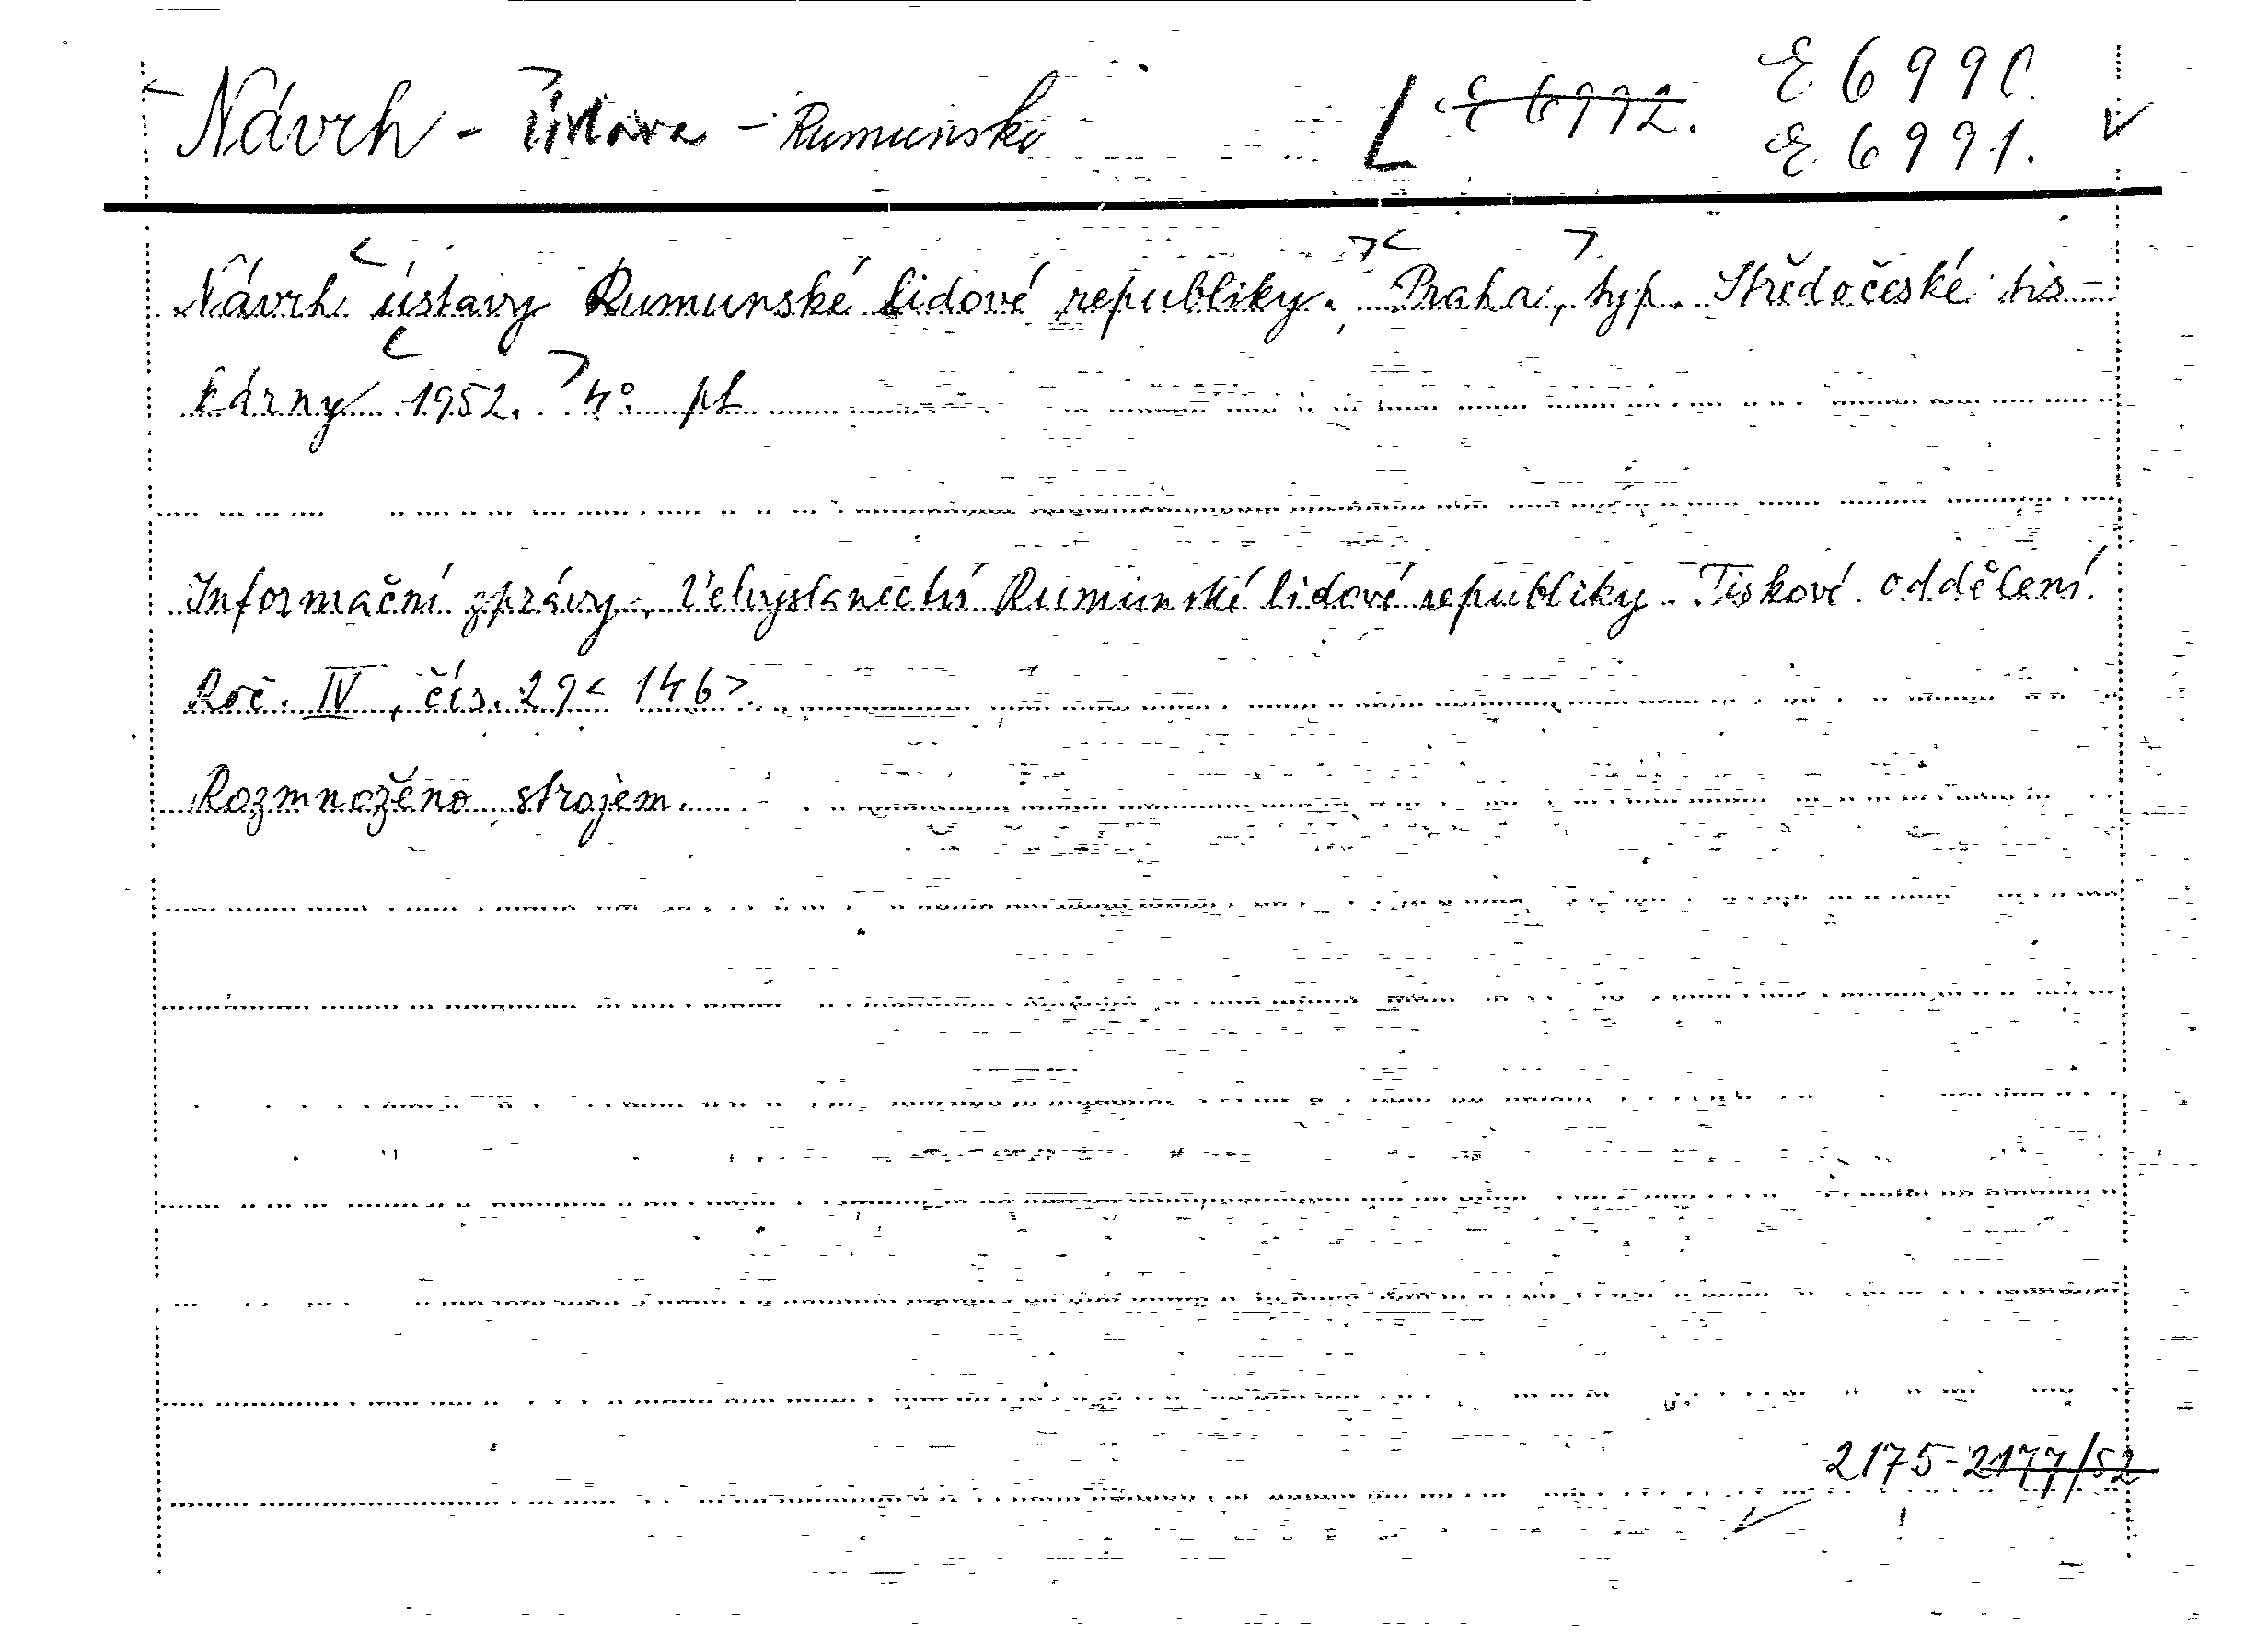 Návrh - Ústava - Rumunsko [ E 6992. E 6990.
E 6991.
Návrh ústavy Rumunské lidové republiky. Praha, typ. Středočeské tis-
kárny 1952. 4° pl
Informační zprávy. Velvyslanectví Rumunské lidové republiky. Tiskové oddělení.
Roč. IV, čís. 29 < 146 >.
Rozmnoženo strojem.
2175-2177/52